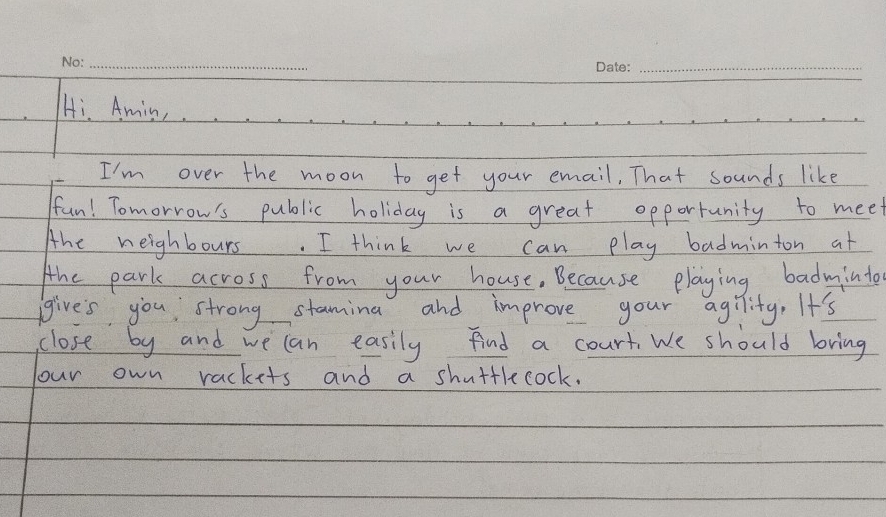 No:
Date:
Hi. Amin,
I'm over the moon to get your email. That sounds like
fun! Tomorrow's public holiday is a great opportunity to meet
the neighbours . I think we can play badminton at
the park across from your house. Because playing badminton
give's you strong stamina and improve your agility. It's
close by and we can easily find a court. We should bring
our own rackets and a shuttlecock.